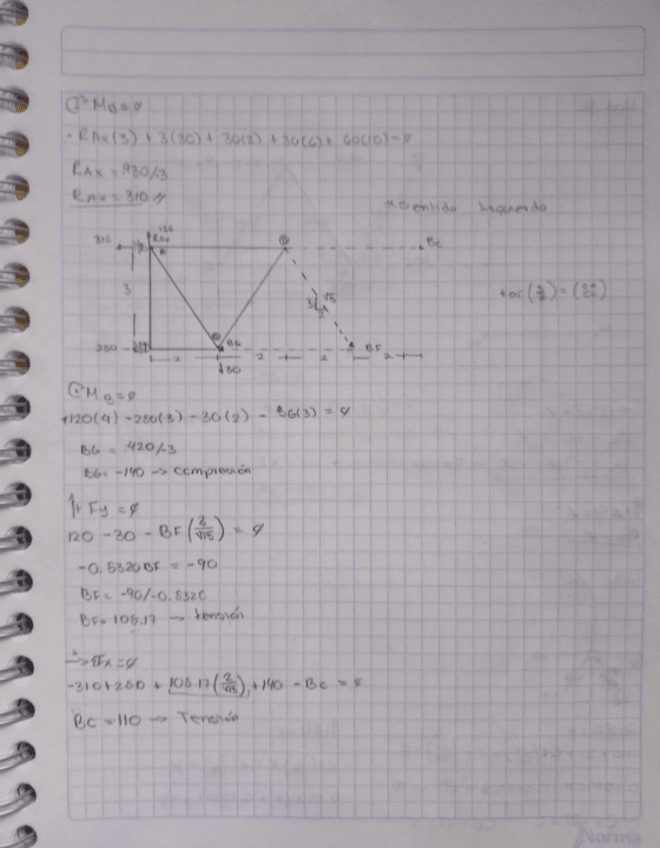 M =0
-RAx(3) + 3(30) + 30(2) + 30(6) + 60(10) = 0
RAx = 930/3
RAx = 310 //
Sentido Izquierdo
120
310 RAy Bc
3 3 √13 2
280 BG BF
2 2 2 2
↓30
M =0
+120(4) - 280(3) - 30(2) - BG(3) = 0
BG = 420/-3
BG = -140 → compresión
↑+ Fy = 0
120 - 30 - BF = 0
-0.8320BF = -90
BF = -90/-0.8320
BF = 108.17 → tensión
→ ΣFx = 0
-310+280 + 108.17 + 140 - Bc = 0
BC = 110 → Tensión
Norma